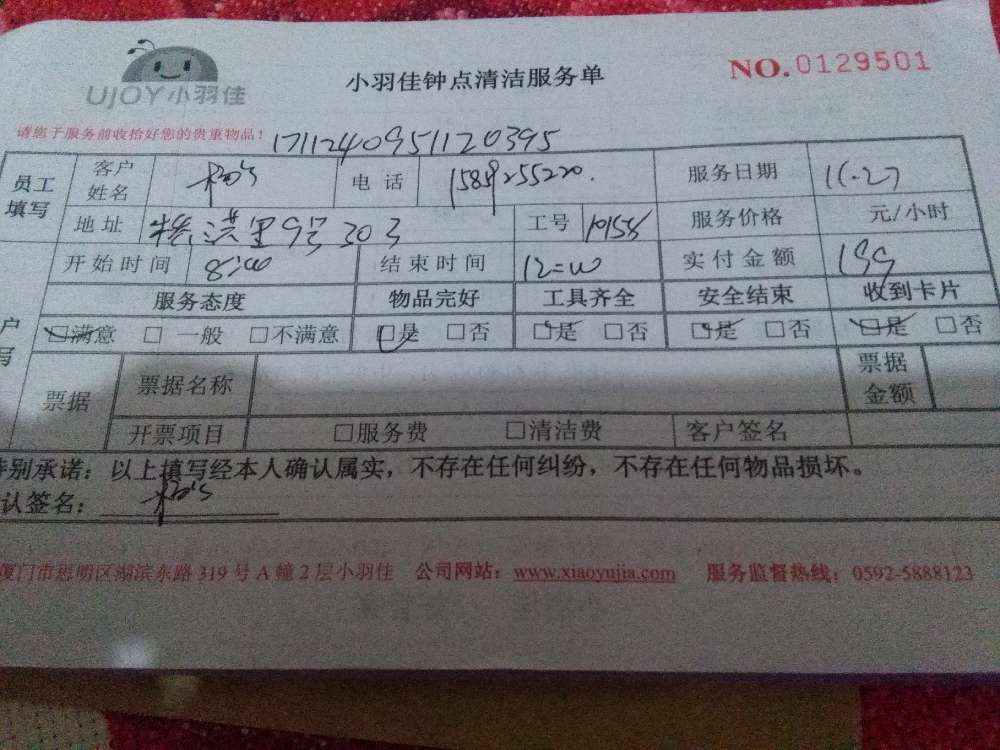 UJOY小羽佳
小羽佳钟点清洁服务单
NO.0129501
请您于服务前收拾好您的贵重物品！
1711240951120395
员工填写
客户姓名
电话
服务日期 11.27
地址 9号303
工号
服务价格 元/小时
开始时间 8:00
结束时间 12:00
实付金额 199
服务态度 物品完好 工具齐全 安全结束 收到卡片
户
写
□满意 □一般 □不满意 □是 □否 □是 □否 □是 □否 □是 □否
票据
票据名称
票据金额
开票项目 □服务费 □清洁费 客户签名
别承诺：以上填写经本人确认属实，不存在任何纠纷，不存在任何物品损坏。
认签名：
厦门市思明区湖滨东路319号A幢2层小羽佳 公司网站：www.xiaoyujia.com 服务监督热线：0592-5888123